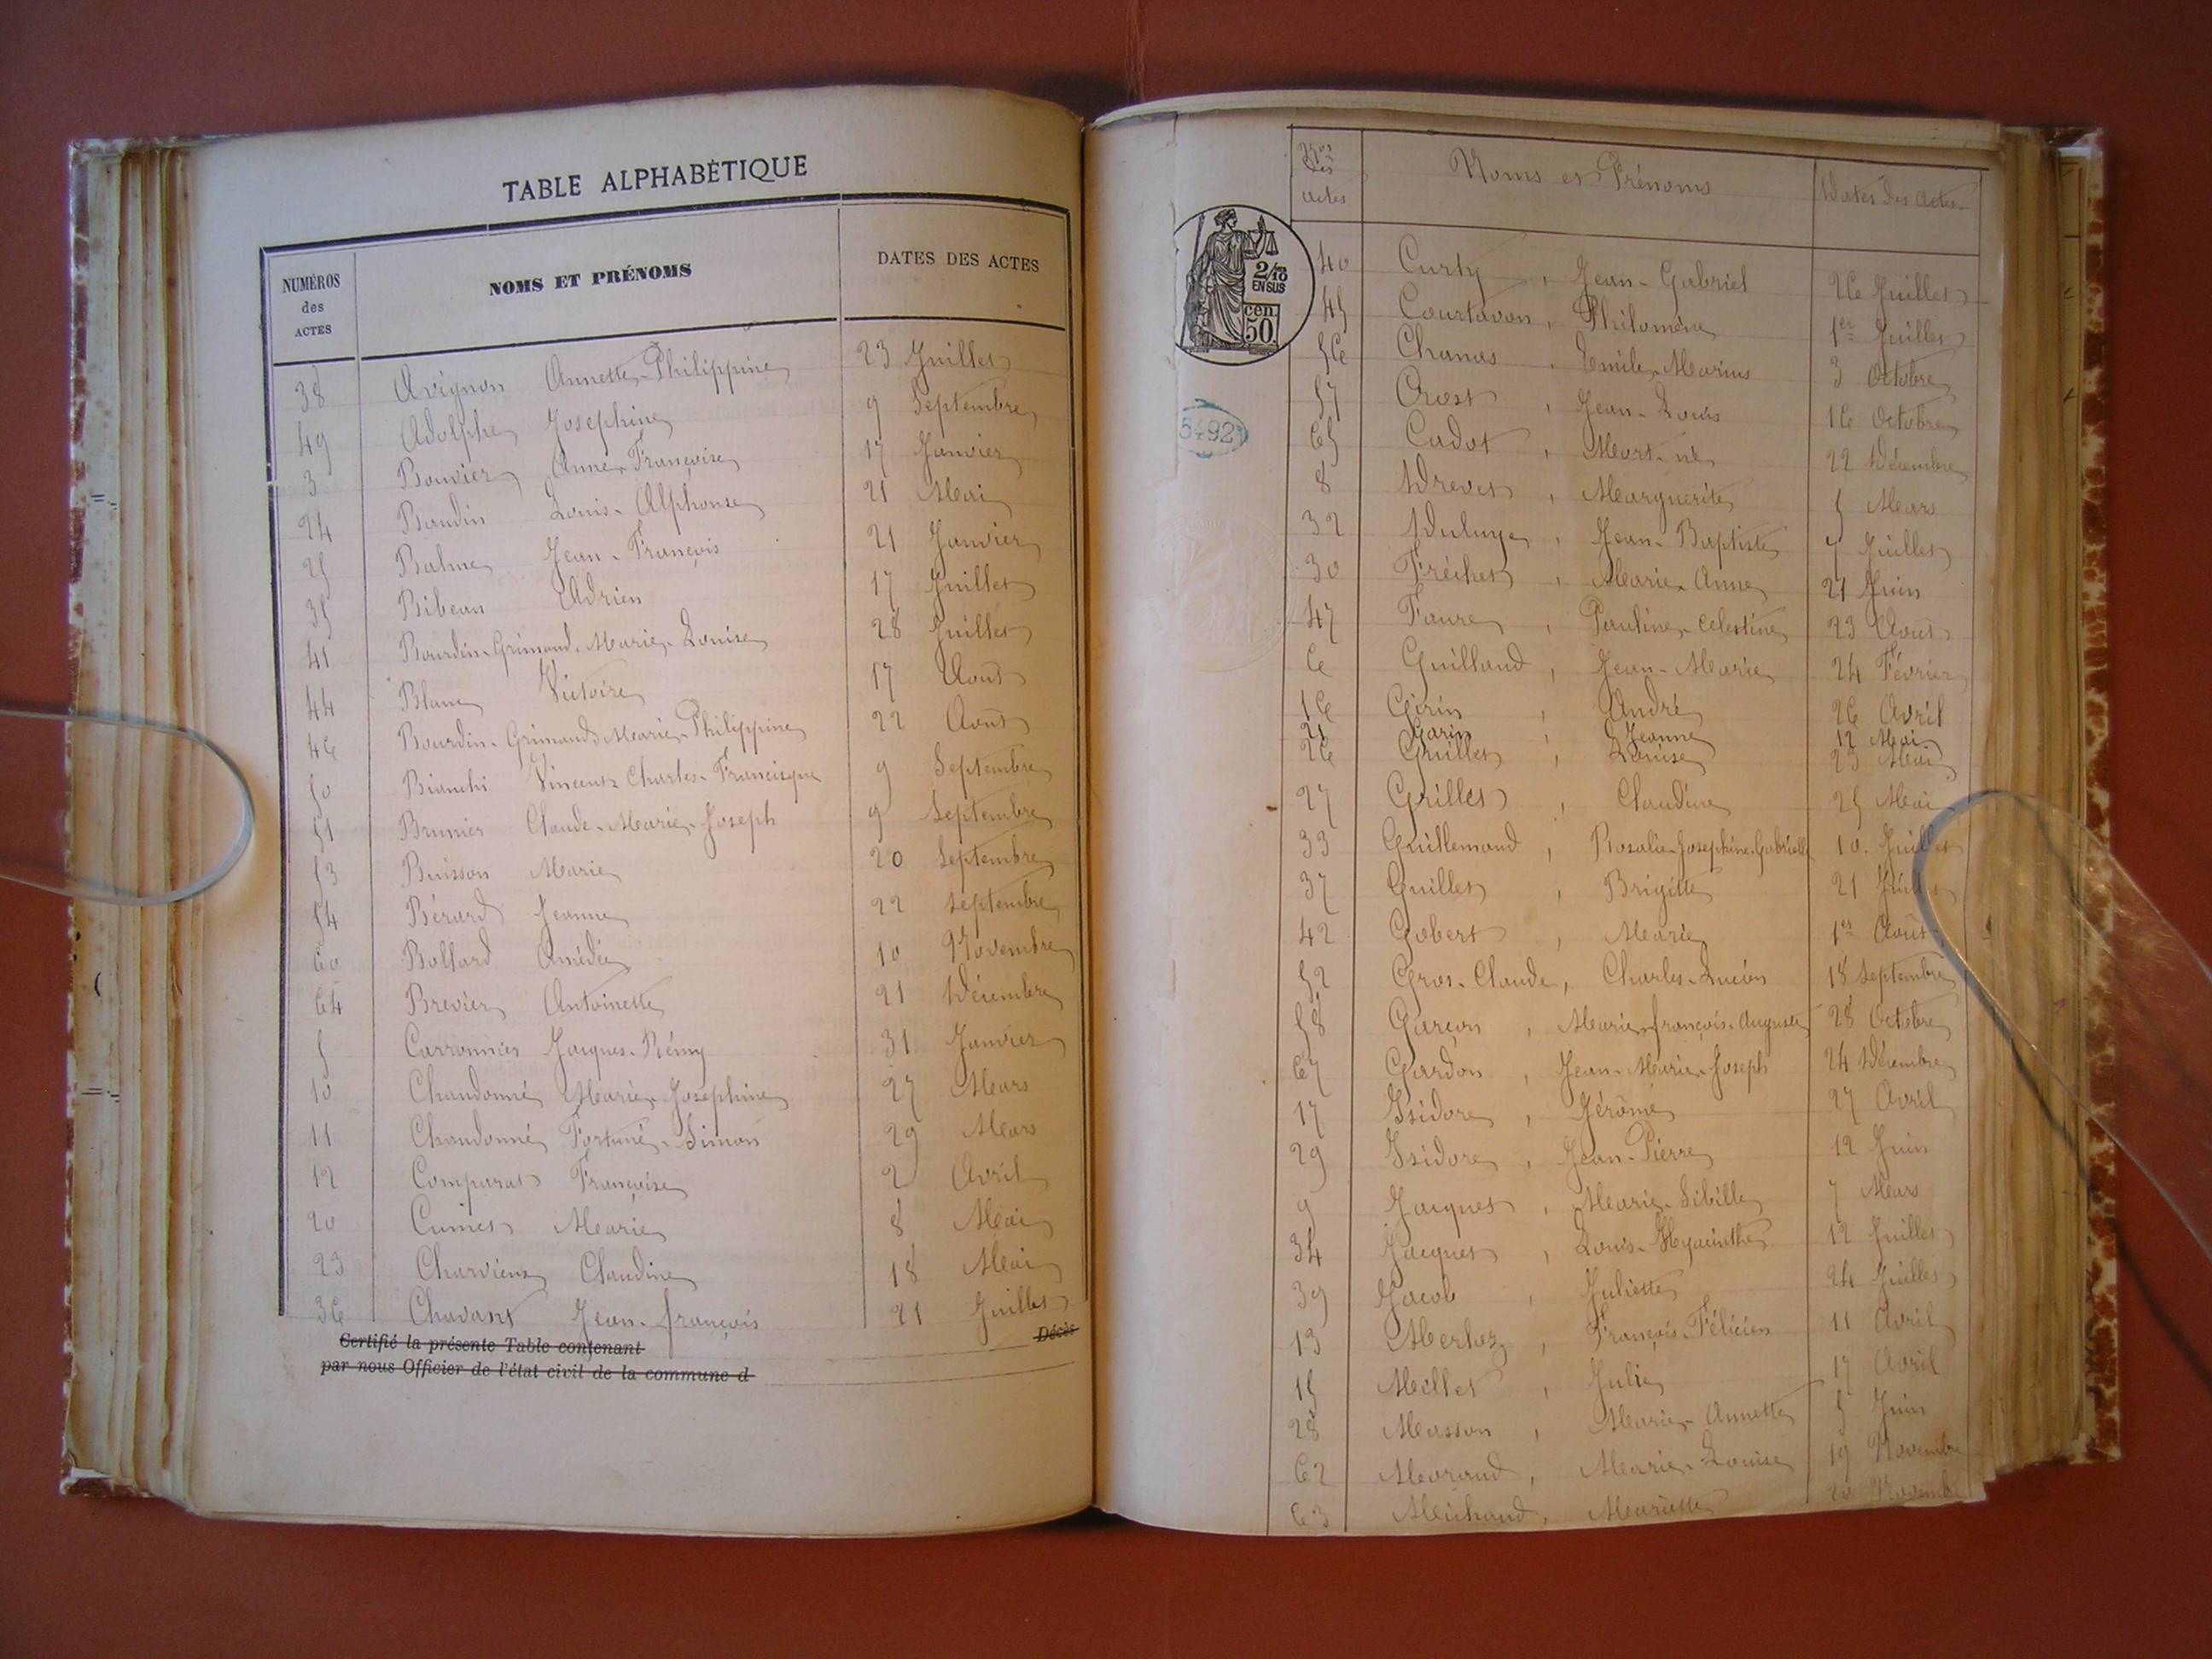 TABLE ALPHABÉTIQUE
NUMÉROS des ACTES NOMS ET PRÉNOMS DATES DES ACTES
38 Avignon Annette-Philippine 23 Juillet
49 Adolphe Josephine 9 Septembre
3 Bouvier Anne-Françoise 17 Janvier
24 Baudin Louis-Alphonse 21 Mai
25 Balme Jean-François 21 Janvier
35 Bibeau Adrien 17 Juillet
41 Bourdin-Grimaud. Marie-Louise 28 Juillet
44 Blanc Victoire 17 Août
46 Bourdin-Grimaud Marie-Philippine 22 Août
50 Bianchi Vincent-Charles-Francisque 9 Septembre
51 Brunier Claude-Marie-Joseph 9 Septembre
53 Buisson Marie 20 Septembre
54 Bérard Jeanne 22 Septembre
60 Bollard Amédée 10 Novembre
64 Brevier Antoinette 21 Décembre
5 Carronnier Jacques-Rémy 31 Janvier
10 Chaudonné Marie-Josephine 27 Mars
11 Chaudonné Fortuné-Simon 29 Mars
12 Comparat Françoise 2 Avril
20 Cuinet Marie 8 Mai
23 Charvieux Claudine 18 Mai
36 Chavant Jean-françois 21 Juillet
Certifié la présente Table contenant Décès
par nous Officier de l'état civil de la commune d
Nos des actes Noms et Prénoms Dates des Actes
2/10 EN SUS
50 cen.
5492
40 Curty, Jean-Gabriel 26 Juillet
45 Courtavon, Philomène 1er Juillet
56 Chanas, Emile-Marius 3 Octobre
57 Crost, Jean-Louis 16 Octobre
65 Cadot, Mort-né 22 Décembre
8 Drevet, Marguerite 5 Mars
32 Duluye, Jean-Baptiste 7 Juillet
30 Fréchet, Marie-Anne 21 Juin
47 Faure, Pauline-Celestine 23 Août
6 Guilland, Jean-Marie 24 Février
16 Girin, André 26 Avril
21 Garin, Jeanne 12 Mai
26 Guillet, Louise 23 Mai
27 Grillet, Claudine 25 Mai
33 Guillemand, Rosalie-Josephine-Gabrielle 10. Juillet
37 Guillet, Brigitte 21 Juillet
42 Gobert, Marie 1er Août
52 Gros-Claude, Charles-Lucien 18 Septembre
58 Garçon, Marie-françois-Auguste 28 Octobre
67 Gardon, Jean-Marie-Joseph 24 Décembre
17 Isidore, Jérôme 27 Avril
29 Isidore, Jean-Pierre 12 Juin
9 Jacquet, Marie-Sibille 7 Mars
34 Jacquet, Louis-Hyacinthe 12 Juillet
39 Jacob, Juliette 24 Juillet
13 Merloz, François-Félicien 11 Avril
15 Millet, Julie 17 Avril
28 Masson, Marie-Annette 5 Juin
62 Morand, Marie-Louise 19 Novembre
63 Michaud, Mariette 20 Novembre